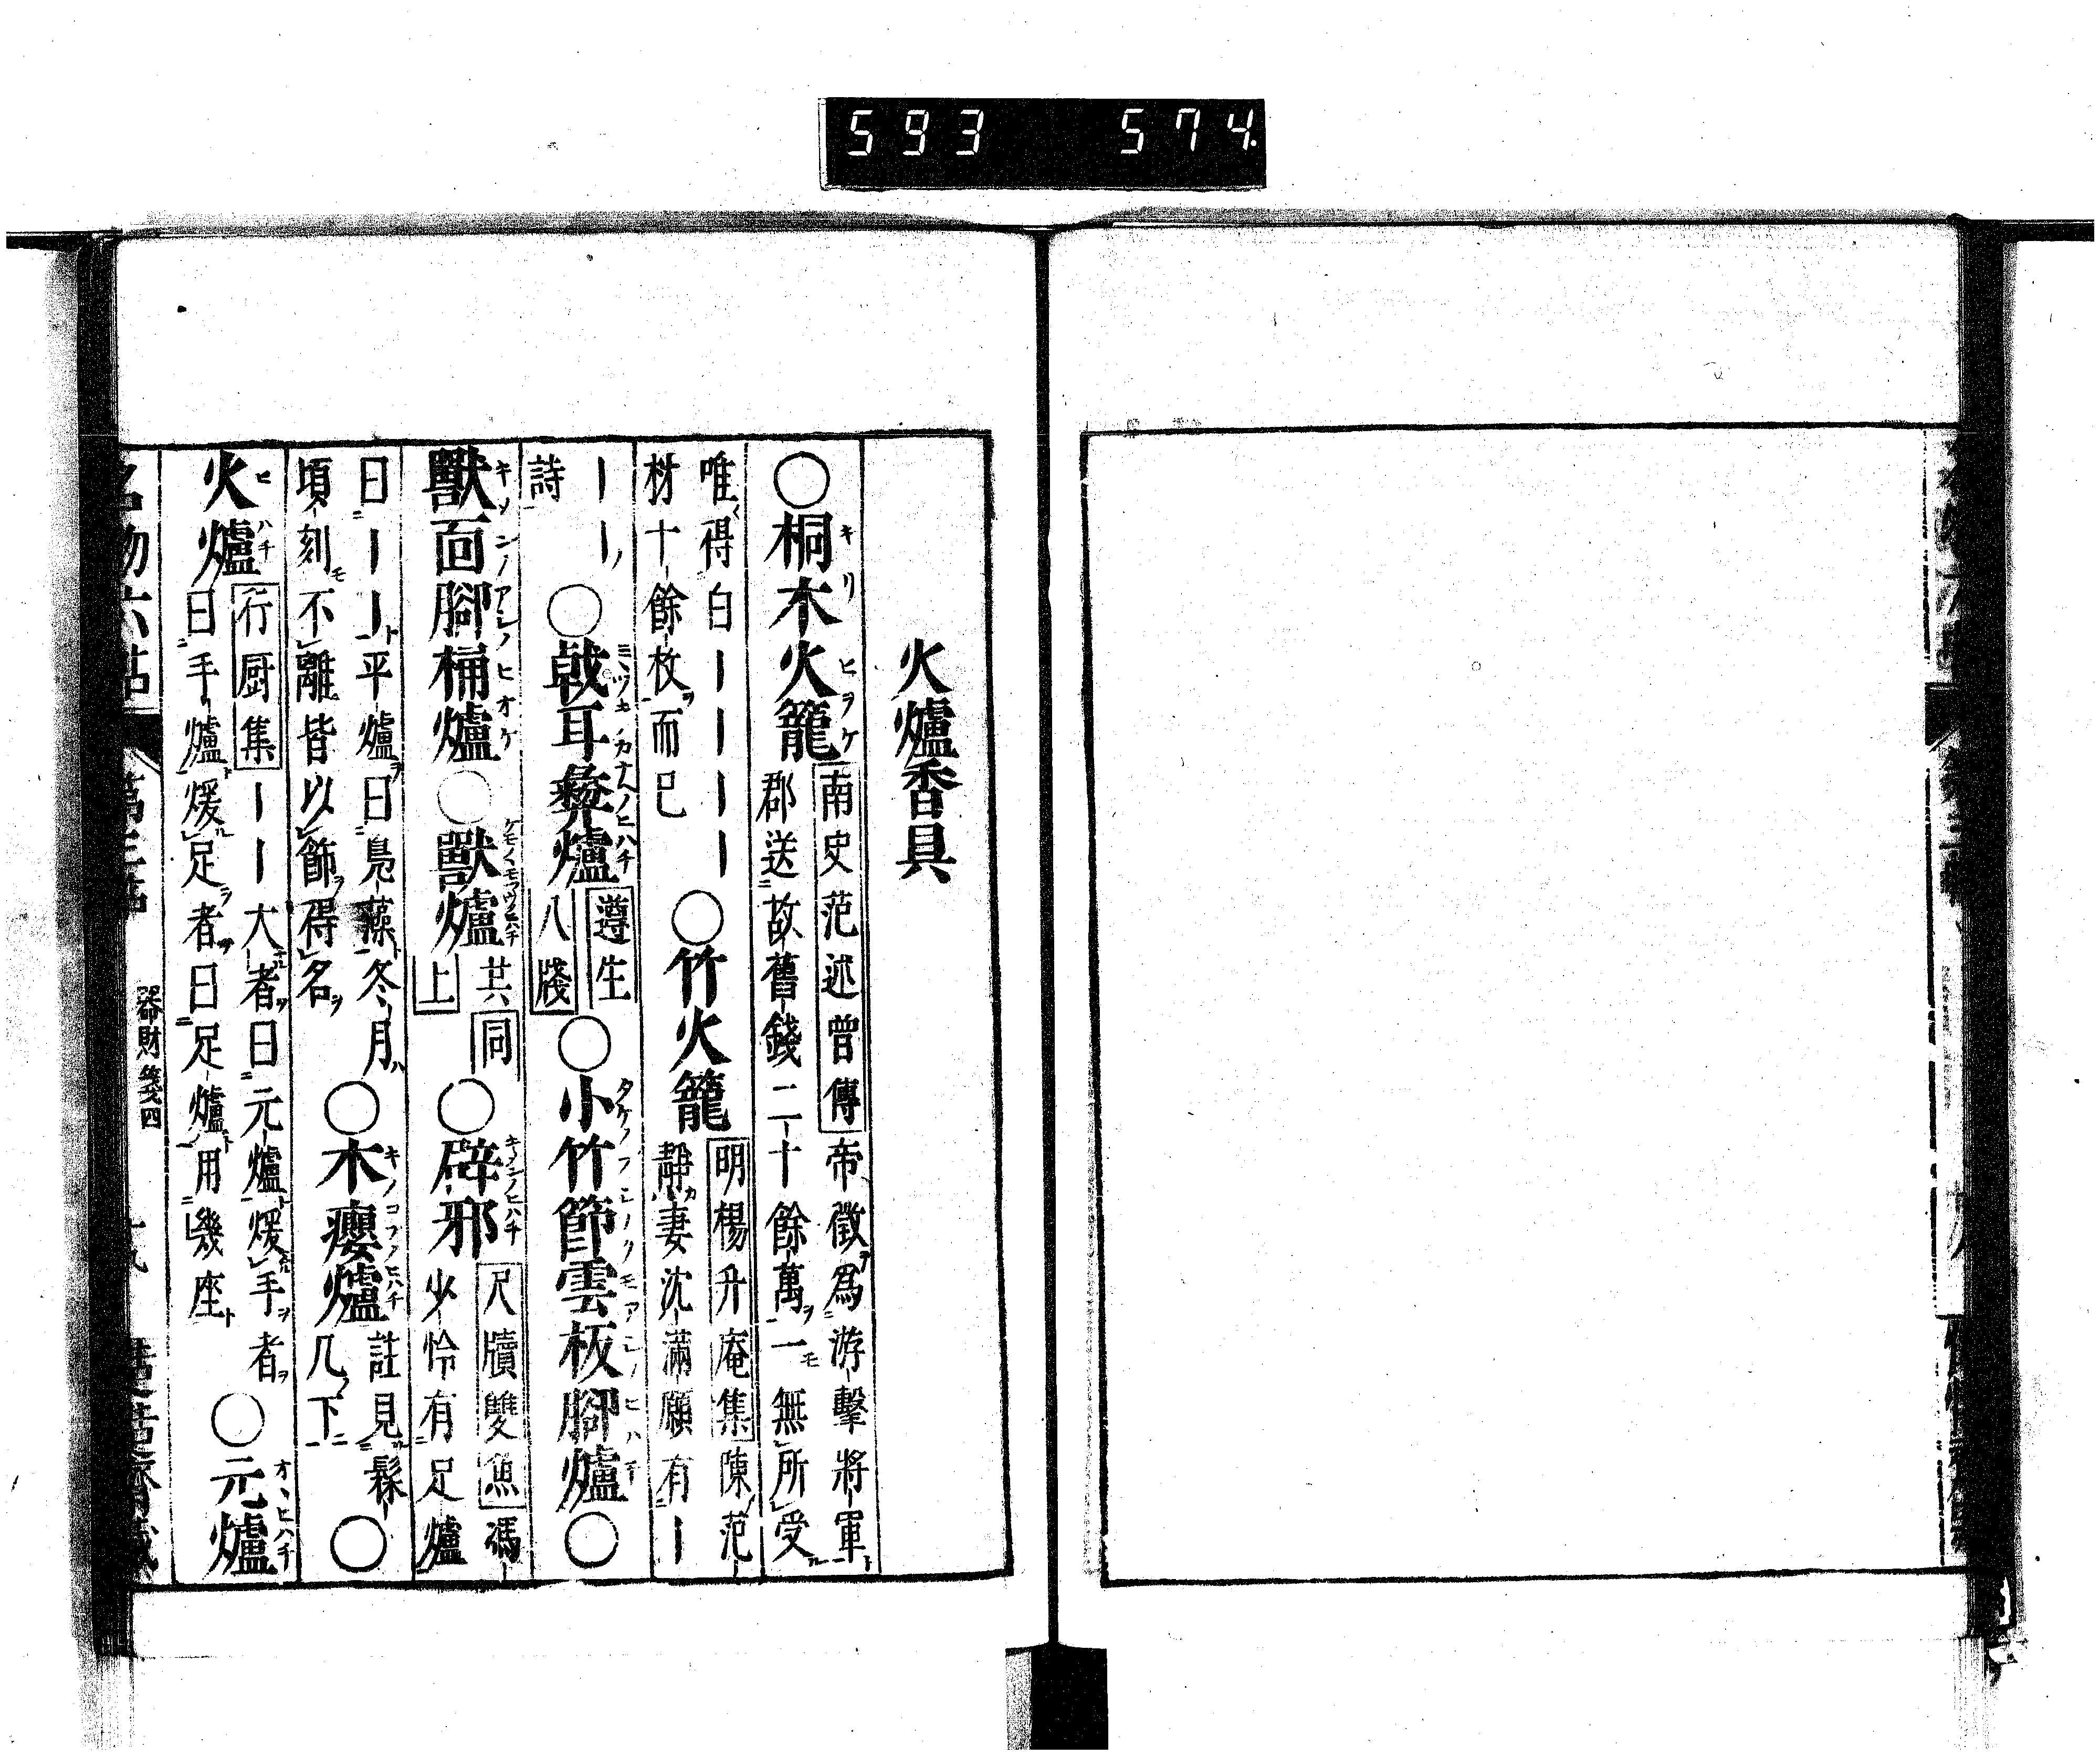 593 574.
火爐香具
○桐木火籠 南史范述曾傳 帝徵爲游擊將軍
郡送故舊錢二十餘萬一無所受
唯得白ーーーー
材十餘枚而已
○竹火籠 明楊升庵集 陳范
靜妻沈滿願有ー
ーー
詩
○戟耳彝爐 遵生
八牋
○小竹節雲板腳爐○
獸面腳桶爐○獸爐 共同
上
○辟邪 尺牘雙魚 馮
少怜有足爐
曰ーー平爐曰鳧藻冬月
頃刻不離皆以飾得名
○木癭爐 註見髹
几下
○
火爐 行厨集 ーーー大者曰元爐煖手者
曰手爐煖足者曰足爐用幾座
○元爐
名物六帖 第三帖 器財箋四